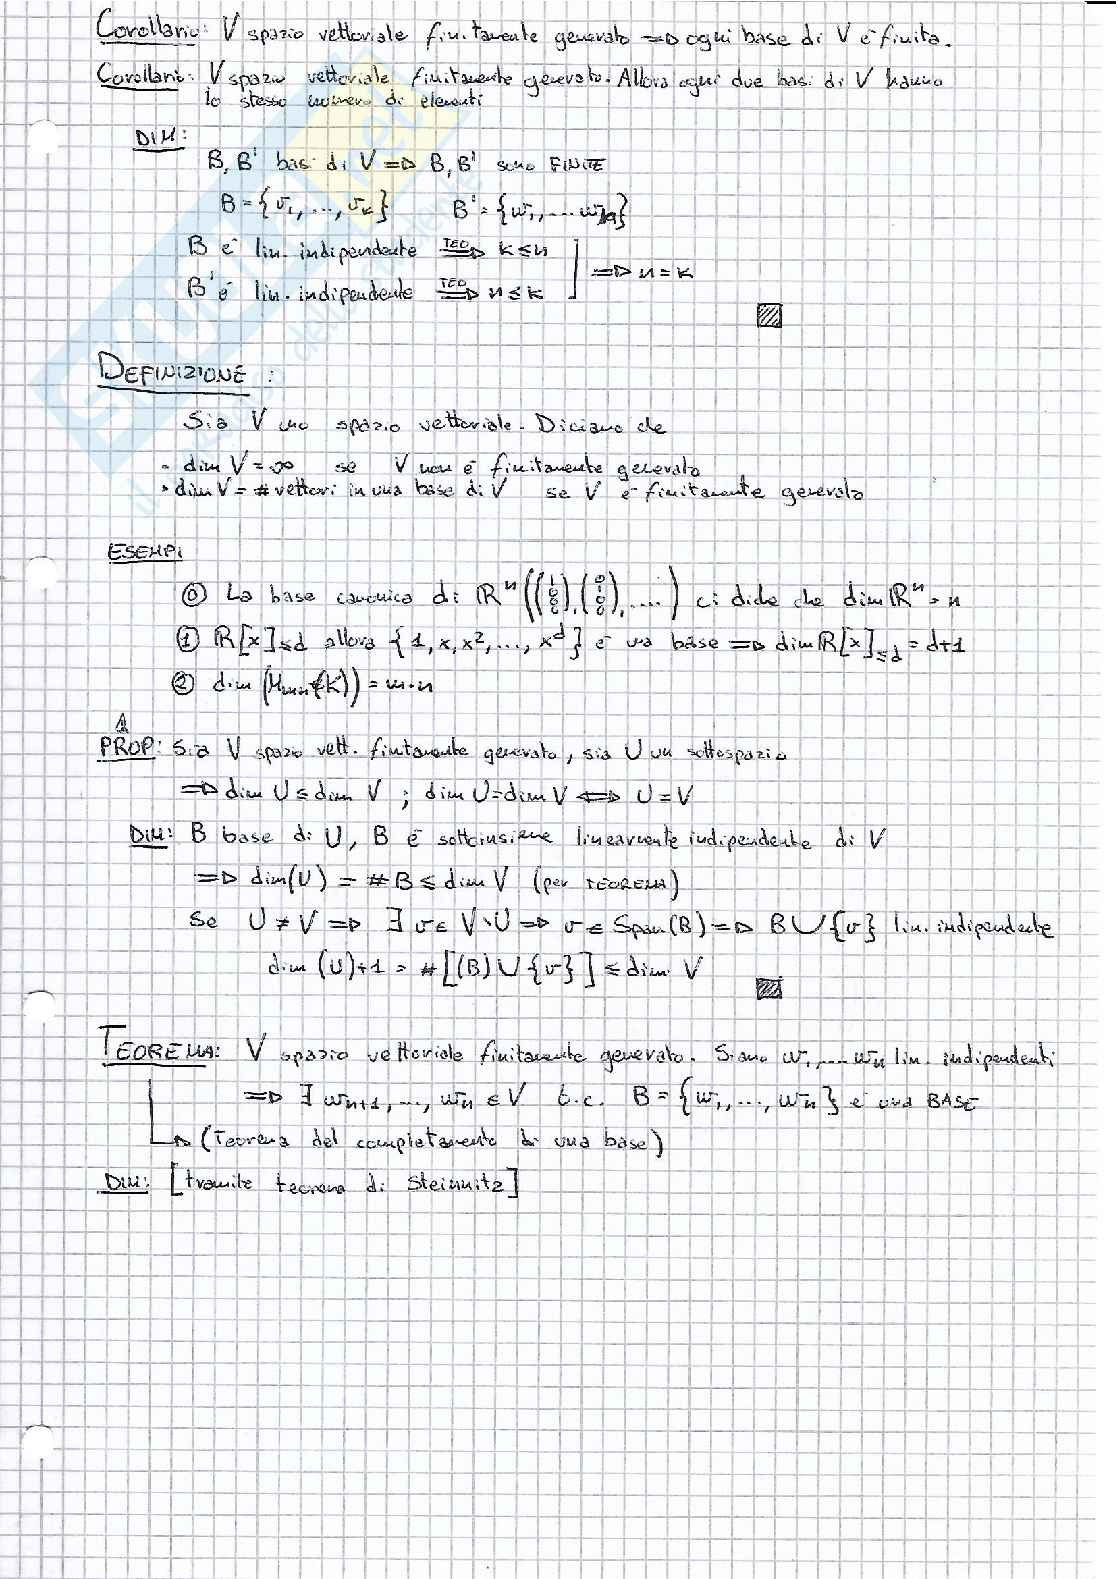 Corollario: V spazio vettoriale finitamente generato ⇒ ogni base di V è finita.
Corollario: V spazio vettoriale finitamente generato. Allora ogni due basi di V hanno
lo stesso numero di elementi
DIM:
B, B' basi di V ⇒ B, B' sono FINITE
B = {v₁, ..., vₖ} B' = {w₁, ... wₙ}
B è lin. indipendente ⇒ (TEO) k ≤ n
⇒ n = k
B' è lin. indipendente ⇒ (TEO) n ≤ k
DEFINIZIONE:
Sia V uno spazio vettoriale. Diciamo che
- dim V = ∞ se V non è finitamente generato
- dim V = # vettori in una base di V se V è finitamente generato
ESEMPI
⓪ La base canonica di ℝⁿ ((1 0 0), (0 1 0), ....) ci dice che dim ℝⁿ = n
① ℝ[x]≤d allora {1, x, x², ..., xᵈ} è una base ⇒ dim ℝ[x]≤d = d+1
② dim (Mmn(K)) = m·n
PROP: Sia V spazio vett. finitamente generato, sia U un sottospazio
⇒ dim U ≤ dim V ; dim U = dim V ⇔ U = V
DIM: B base di U, B è sottoinsieme linearmente indipendente di V
⇒ dim(U) = #B ≤ dim V (per TEOREMA)
Se U ≠ V ⇒ ∃ v ∈ V∖U ⇒ v ∈ Span(B) ⇒ B ∪ {v} lin. indipendente
dim (U)+1 = #[(B) ∪ {v}] ≤ dim V
TEOREMA: V spazio vettoriale finitamente generato. Siano w₁, .... wₙ lin. indipendenti
⇒ ∃ wₙ₊₁, ..., wₙ ∈ V t.c. B = {w₁, ..., wₙ} è una BASE
(Teorema del completamento di una base)
DIM: [tramite teorema di Steinnitz]